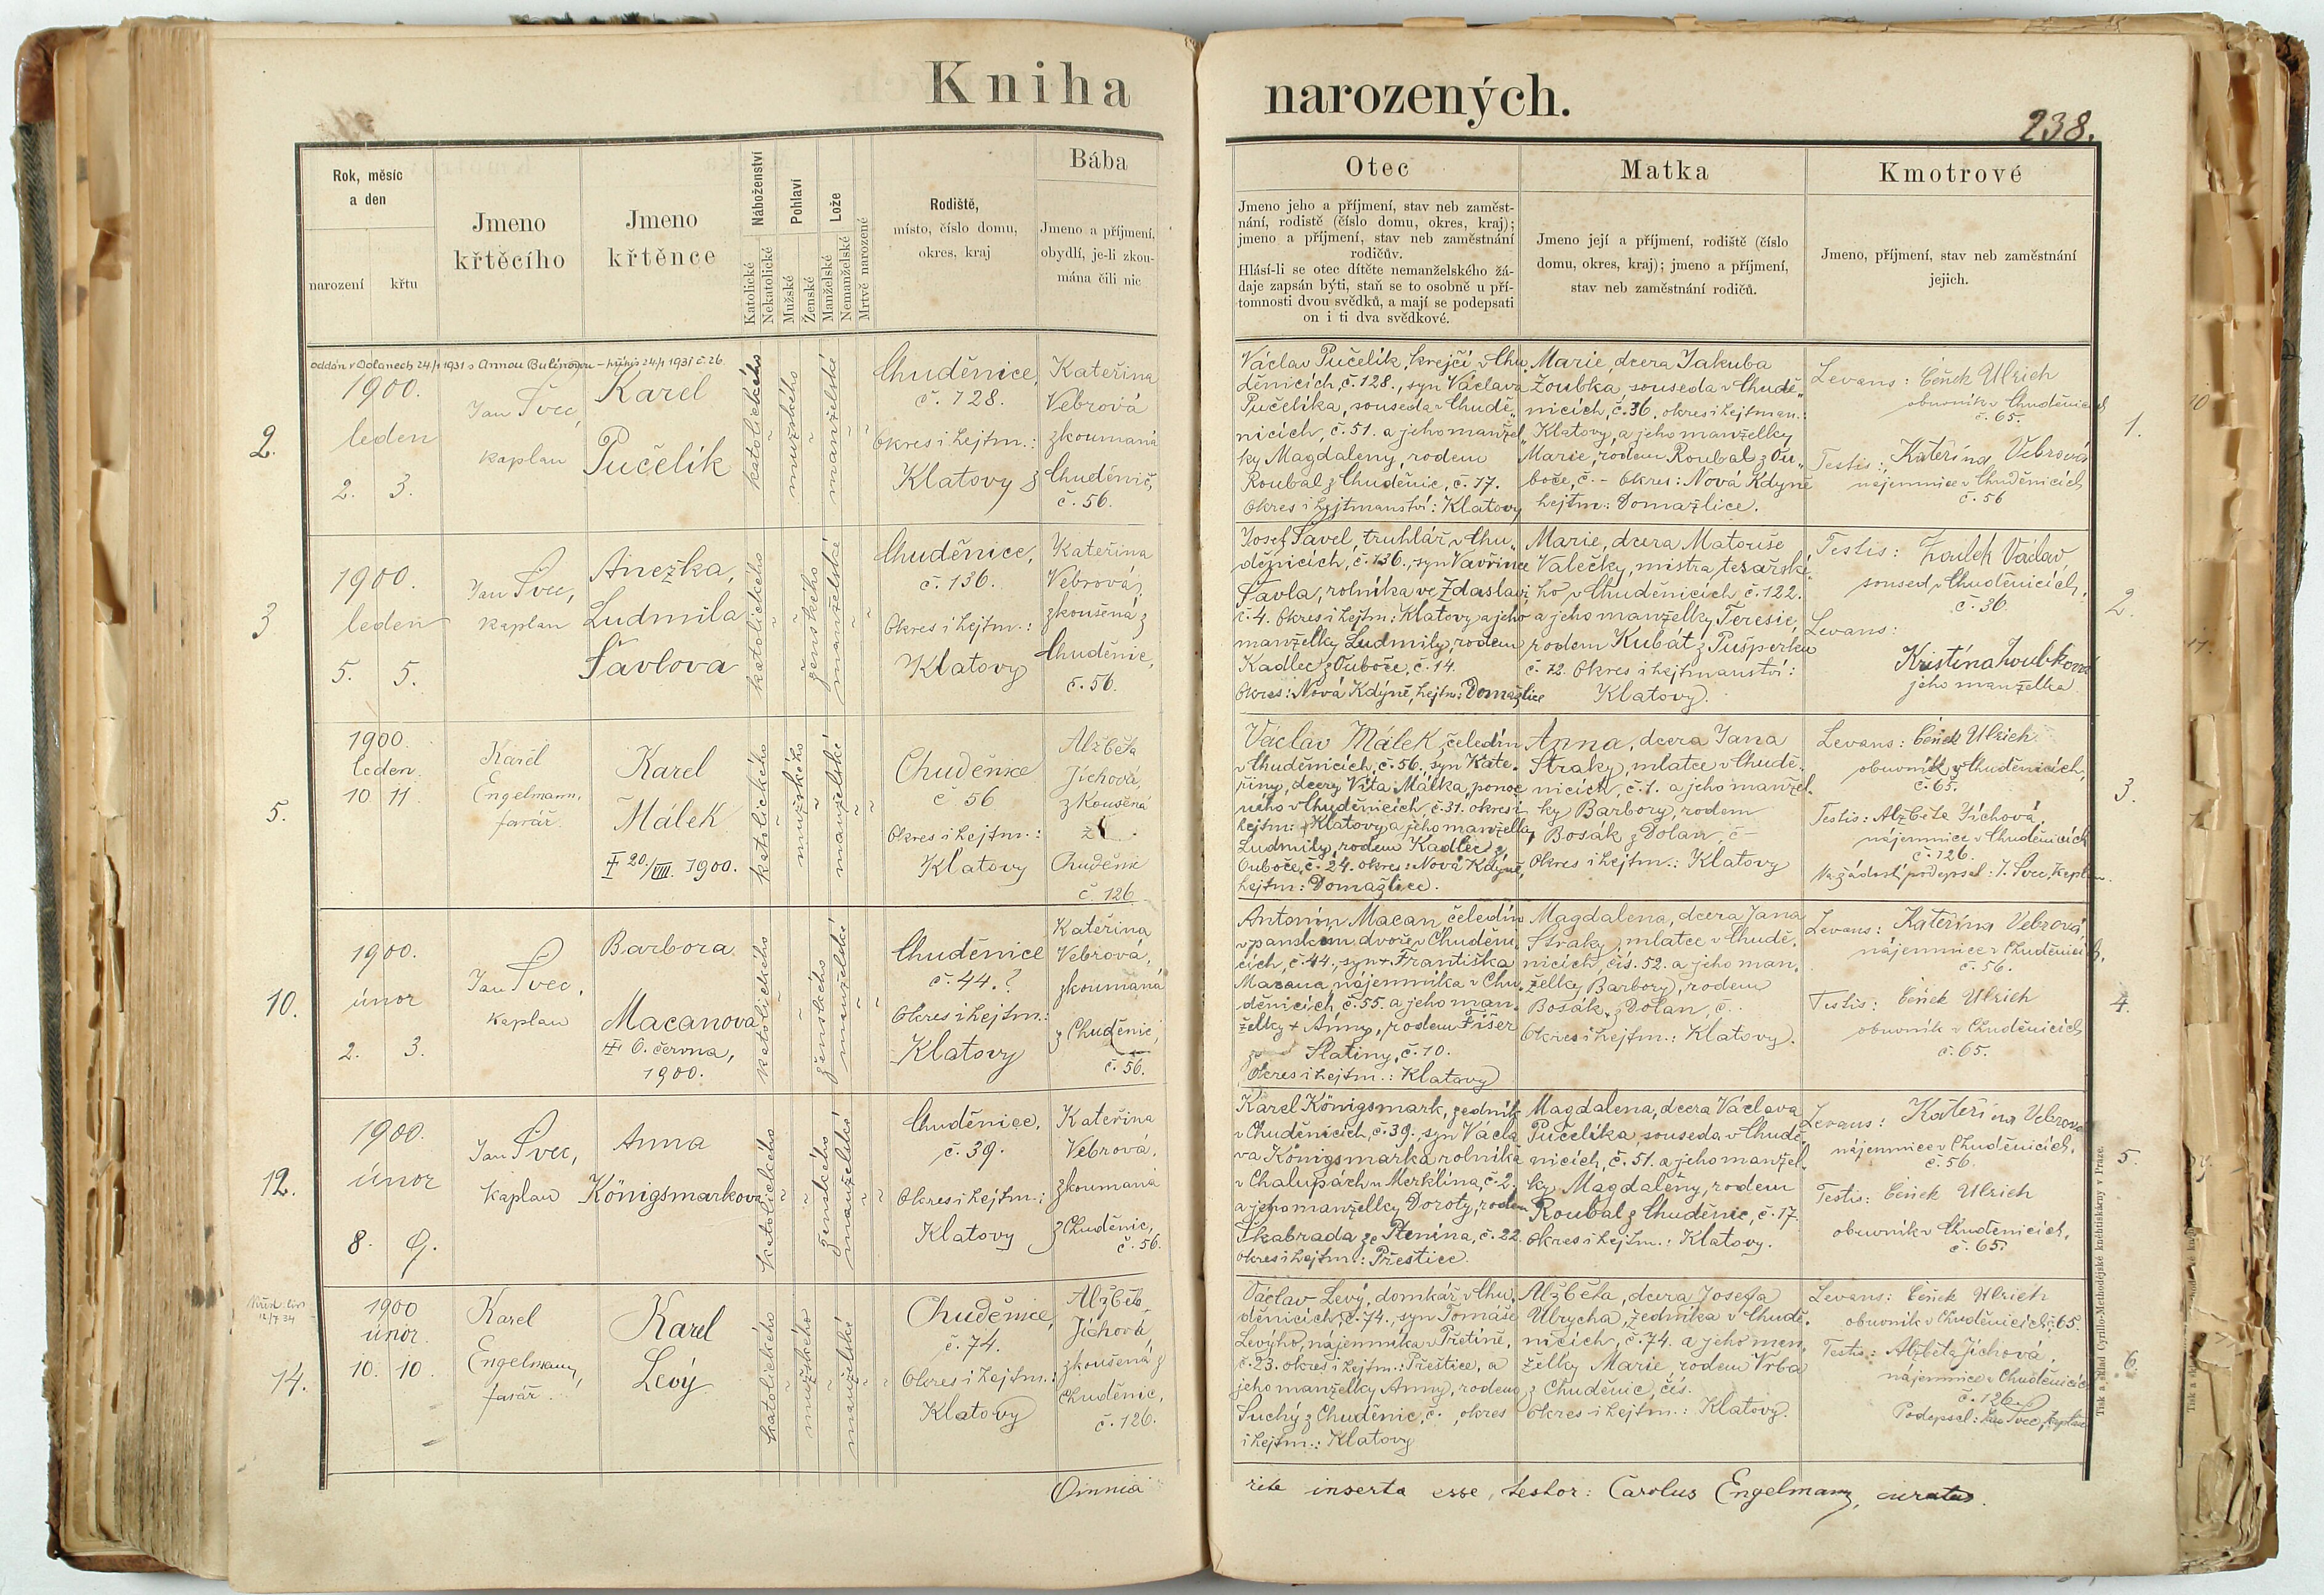 Kniha
narozených.
238.
Rok, měsíc
a den
narození
křtu
Jmeno
křtěcího
Jmeno
křtěnce
Náboženství
Katolické
Nekatolické
Pohlaví
Mužské
Ženské
Lože
Manželské
Nemanželské
Mrtvě narozené
Rodiště,
místo, číslo domu,
okres, kraj
Bába
Jmeno a příjmení,
obydlí, je-li zkou-
mána čili nic
Otec
Jmeno jeho a příjmení, stav neb zaměst-
nání, rodistě (číslo domu, okres, kraj);
jmeno a příjmení, stav neb zaměstnání
rodičův.
Hlásí-li se otec dítěte nemanželského žá-
daje zapsán býti, staň se to osobně u pří-
tomnosti dvou svědků, a mají se podepsati
on i ti dva svědkové.
Matka
Jmeno její a příjmení, rodiště (číslo
domu, okres, kraj); jmeno a příjmení,
stav neb zaměstnání rodičů.
Kmotrové
Jmeno, příjmení, stav neb zaměstnání
jejich.
oddán v Dolanech 24/1 1931 s Annou
2.
1900.
leden
2. 3.
Jan Švec,
kaplan
Karel
Pučelík
katolického
mužského
manželské
Chuděnice,
č. 128.
Okres i hejtm.:
Klatovy
Kateřina
Vebrová
zkoumaná
z Chuděnic,
č. 56.
Václav Pučelík, krejčí v Chu„
děnicích, č. 128., syn Václava
Pučelíka, souseda v Chudě„
nicích, č. 51. a jeho manžel„
ky Magdaleny, rodem
Roubal z Chuděnic, č. 17.
Okres i hejtmanství: Klatovy
Marie, dcera Jakuba
Zoubka, souseda v Chudě„
nicích, č. 36, okres i hejtman.:
Klatovy, a jeho manželky
Marie, rodem Roubal z Ou„
boče, č. - Okres: Nová Kdyně
hejtm: Domažlice.
Levans: Čeněk Ulrich
obuvník v Chuděnicích
č. 65.
Testis: Kateřina Vebrová
nájemnice v Chuděnicích
č. 56
1.
3
1900.
leden
5. 5.
Jan Švec,
kaplan
Anežka,
Ludmila
Šavlova
katolického
ženského
manželské
Chuděnice,
č. 136.
Okres i hejtm.:
Klatovy
Kateřina
Vebrová,
zkoušená z
Chuděnic,
č. 56.
Josef Šavel, truhlář v Chu„
děnicích, č. 136., syn Vavřince
Šavla, rolníka ve Zdaslavi
č. 4. Okres i hejtm: Klatovy a jeho
manželky Ludmily, rodem
Kadlec z Ouboče, č. 14.
Okres: Nová Kdyně, hejtm: Domažlice
Marie, dcera Matouše
Valečky, mistra tesařské„
ho v Chuděnicích č. 122.
a jeho manželky Teresie,
rodem Kubát z Pušperku
č. 72. Okres i hejtmanství:
Klatovy.
Testis: Zoubek Václav,
soused v Chuděnicích,
č. 36.
Levans:
Kristína Zoubková
jeho manželka
2.
5.
1900.
leden.
10 11
Karel
Engelmann,
farář.
Karel
Málek
20./VIII. 1900.
katolického
mužského
manželské
Chuděnice
č. 56
Okres i hejtm.:
Klatovy
Alžběta
Jíchová,
zkoušená
z
Chuděnic
č. 126
Václav Málek, čeledín
v Chuděnicích, č. 56, syn Kate„
řiny, dcery Víta Málka, ponoc„
ného v Chuděnicích č. 31. okres i
hejtm: Klatovy a jeho manželky
Ludmily, rodem Kadlec z
Ouboče, č. 24. okres: Nová Kdyně,
hejtm: Domažlice.
Anna, dcera Jana
Straky, mlatce v Chudě„
nicích, č. 1. a jeho manžel„
ky Barbory, rodem
Bosák z Dolan, č -
Okres i hejtm.: Klatovy
Levans: Čeněk Ulrich
obuvník v Chuděnicích,
č. 65.
Testis: Alžběta Jíchová,
nájemnice v Chuděnicích
č. 126.
Na žádost podepsal: J. Švec, kaplan.
3.
10.
1900.
únor
2. 3.
Jan Švec,
kaplan
Barbora
Macanova
6. června,
1900.
katolického
ženského
manželské
Chuděnice
č. 44.?
Okres i hejtm.:
Klatovy
Kateřina
Vebrová,
zkoumaná
z Chuděnic,
č. 56.
Antonín Macan, čeledín
v panském dvoře v Chuděni„
cích, č. 44., syn + Františka
Macana, nájemníka v Chu„
děnicích, č. 55. a jeho man„
želky + Anny, rodem Fišer
ze Slatiny, č. 10.
Okres i hejtm.: Klatovy
Magdalena, dcera Jana
Straky, mlatce v Chudě„
nicích, čís. 52. a jeho man„
želky Barbory, rodem
Bosák, z Dolan, č. -
Okres i hejtm.: Klatovy.
Levans: Kateřina Vebrová,
nájemnice v Chuděnicích,
č. 56.
Testis: Čeněk Ulrich
obuvník v Chuděnicích
č. 65.
4.
12.
1900.
únor
8. 9.
Jan Švec,
kaplan
Anna
Königsmarkova
katolického
ženského
manželské
Chuděnice,
č. 39.
Okres i hejtm.:
Klatovy
Kateřina
Vebrová,
zkoumaná
z Chuděnic,
č. 56.
Karel Königsmark, zedník
v Chuděnicích, č. 39., syn Václa„
va Königsmarka rolníka
v Chalupách u Merklína, č. 2.
a jeho manželky Doroty, rodem
Škabrada ze Ptenína, č. 22.
Okres i hejtm.: Přestice.
Magdalena, dcera Václava
Pučelíka, souseda v Chudě„
nicích, č. 51. a jeho manžel„
ky Magdaleny, rodem
Roubal z Chuděnic, č. 17.
Okres i hejtm.: Klatovy.
Levans: Kateřina Vebrova
nájemnice v Chuděnicích,
č. 56.
Testis: Čeněk Ulrich
obuvník v Chuděnicích,
č. 65.
5.
14.
1900
únor.
10. 10.
Karel
Engelmann,
farář.
Karel
Levý
katolického
mužského
manželské
Chuděnice,
č. 74.
Okres i hejtm.:
Klatovy
Alžběta
Jíchová,
zkoušená z
Chuděnic,
č. 126.
Václav Levý, domkář v Chu„
děnicích, č. 74., syn Tomáše
Levýho, nájemníka v Přetíně,
č. 23. okres i hejtm.: Přeštice, a
jeho manželky Anny, rodem
Suchý z Chuděnic, č. , okres
i hejtm.: Klatovy
Alžběta, dcera Josefa
Ulrycha, zedníka v Chudě„
nicích, č. 74. a jeho man„
želky Marie, rodem Vrba
z Chuděnic, čís.
Okres i hejtm.: Klatovy.
Levans: Čeněk Ulrich
obuvník v Chuděnicích č. 65.
Testis: Alžběta Jíchová,
nájemnice v Chuděnicích
č. 126.
Podepsal: Jan Švec, kaplan
6.
Omnia rite inserta esse, testor: Carolus Engelmann, curatus.
Tisk a sklad Cyrillo-Methodějské knihtiskárny v Praze.